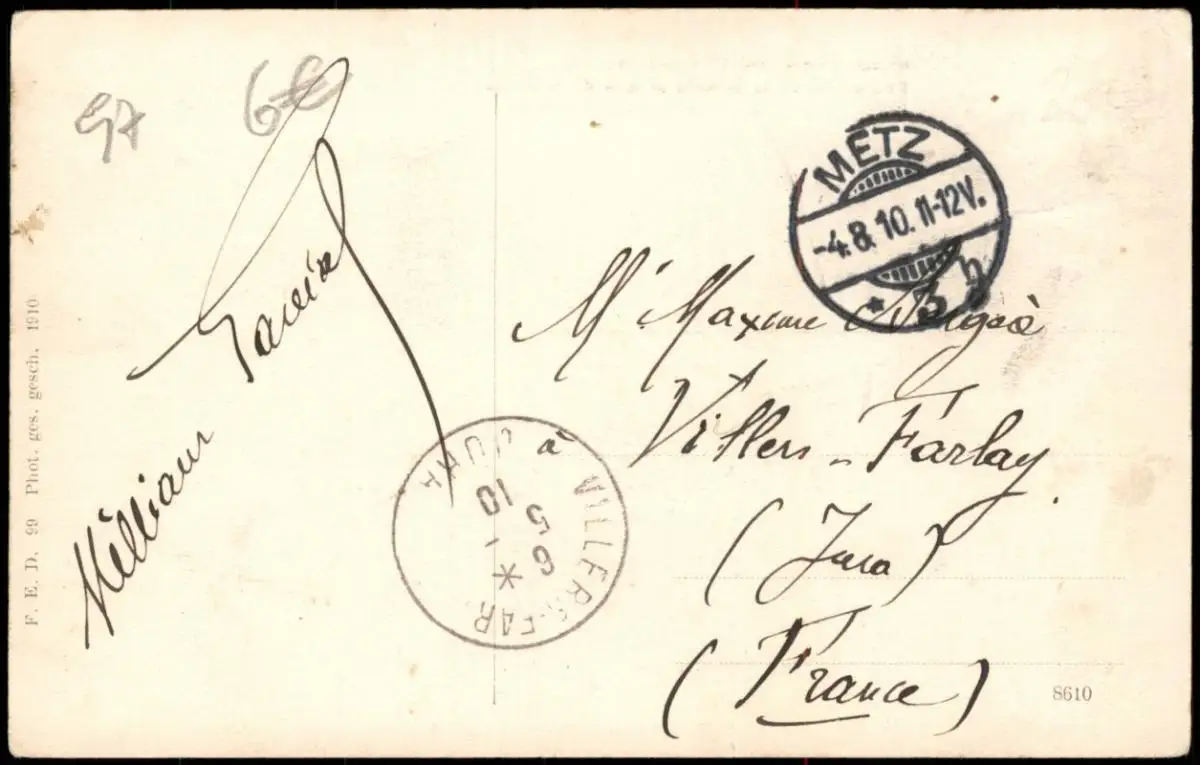 97
6€
F. E. D. 99 Phot. ges. gesch. 1910
METZ
-4.8.10.11-12V.
* 3 h
Mr Maxime
à
Villers-Farlay.
(Jura)
(France)
VILLERS-FAR.
JURA
10
8610